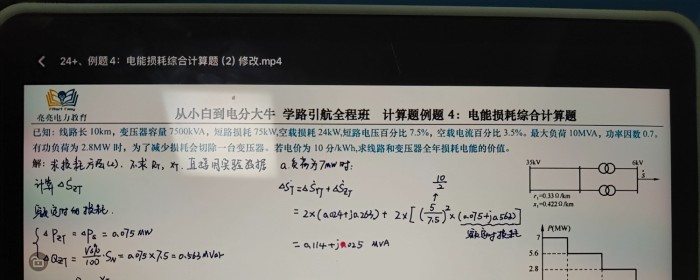 24+、例题4：电能损耗综合计算题 (2) 修改.mp4
亮亮电力教育
从小白到电分大牛 学路引航全程班 计算题例题 4：电能损耗综合计算题
已知：线路长 10km，变压器容量 7500kVA，短路损耗 75kW,空载损耗 24kW,短路电压百分比 7.5%，空载电流百分比 3.5%。最大负荷 10MVA，功率因数 0.7。
有功负荷为 2.8MW 时，为了减少损耗会切除一台变压器。若电价为 10 分/kWh,求线路和变压器全年损耗电能的价值。
解：求损耗方法(2)，不求 RT，XT，直接用实验数据
a.负荷为7MW时：
计算 ΔSZT
ΔST=ΔSYT+ΔSZT
10/2
=2×(0.024+j0.263)+2×[(5/7.5)²×(0.075+j0.563)]
额定时损耗
额定时的损耗
ΔPZT = ΔPS = 0.075 MW
=0.114+j1.025 MVA
ΔQZT = VS%/100·SN = 0.075×7.5=0.563 MVar
35kV
6kV
r₁=0.33 Ω/km
x₁=0.422 Ω/km
P(MW)
7
5.6
2.8